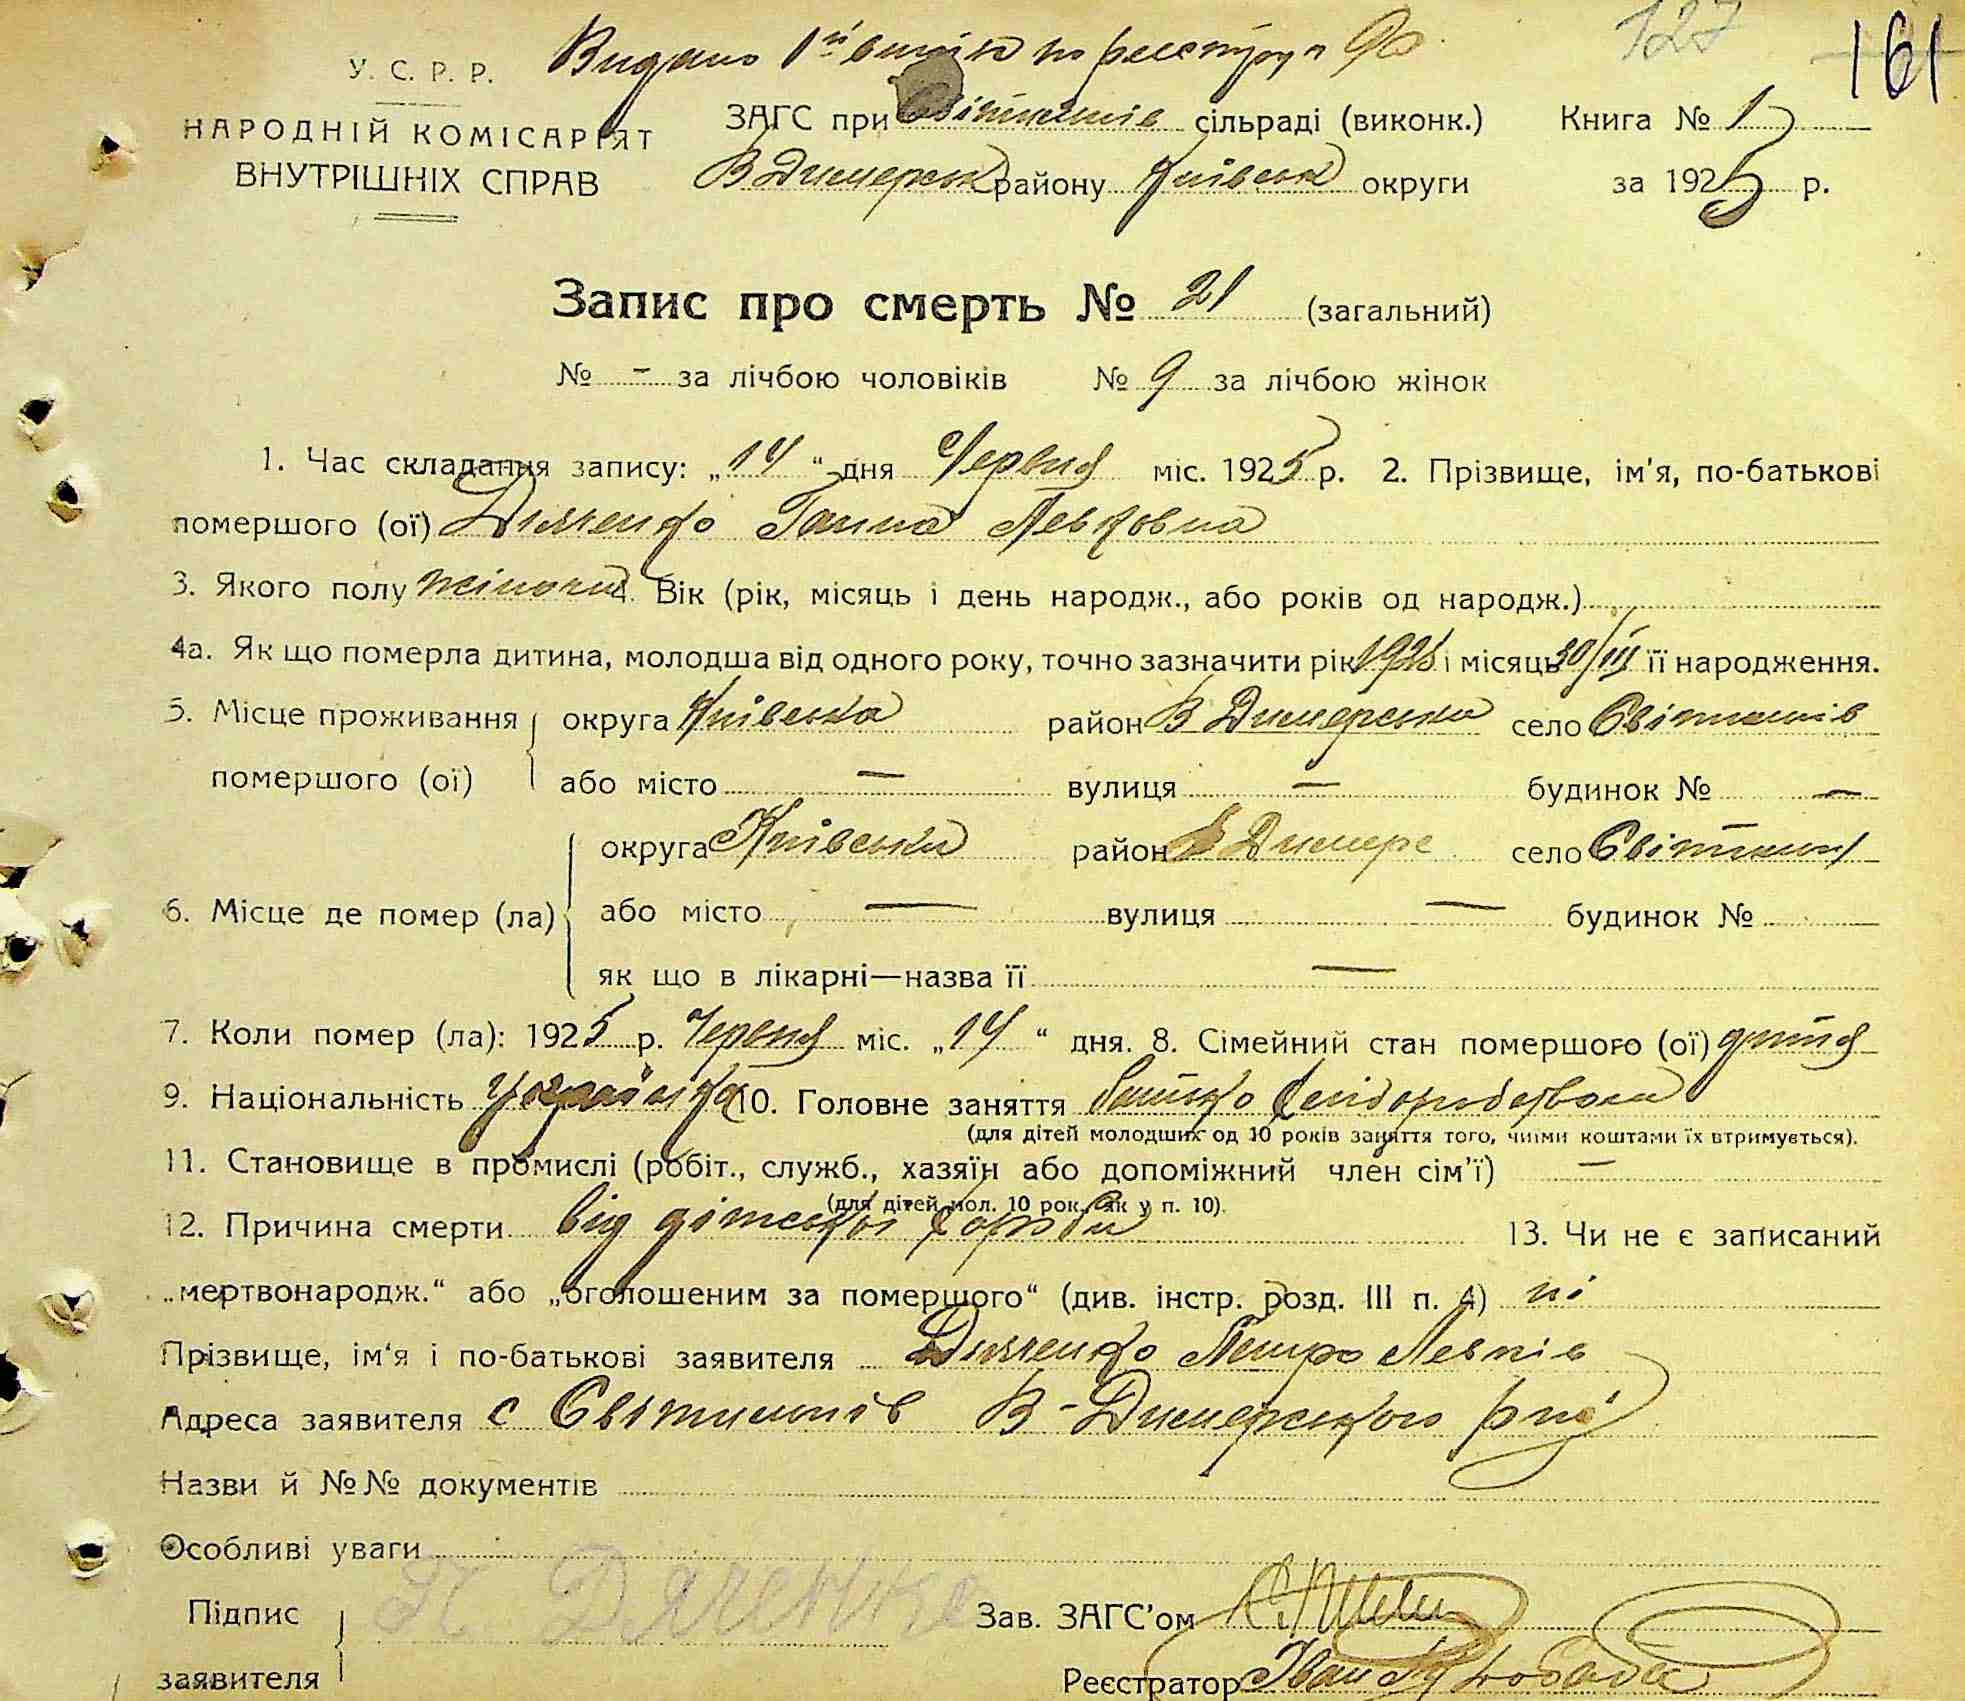 127 161
У. С. Р. Р. Видано 1й витяг по реєстру №
НАРОДНІЙ КОМІСАРІЯТ ЗАГС при Світильнів сільраді (виконк.) Книга № 1
ВНУТРІШНІХ СПРАВ В Димерськ району Київськ округи за 1925 р.
Запис про смерть № 21 (загальний)
№ - за лічбою чоловіків № 9 за лічбою жінок
1. Час складання запису: „14“ дня Червня міс. 1925 р. 2. Прізвище, ім'я, по-батькові
помершого (ої) Дяченко Ганна Левковна
3. Якого полу жіночи 4. Вік (рік, місяць і день народж., або років од народж.)
4а. Як що померла дитина, молодша від одного року, точно зазначити рік 1925 і місяць 30/III її народження.
5. Місце проживання округа Київська район В Димерський село Світильнів
помершого (ої) або місто — вулиця — будинок № —
округа Київська район В Димерс село Світильн
6. Місце де помер (ла) або місто — вулиця — будинок №
як що в лікарні—назва її —
7. Коли помер (ла): 1925 р. Червня міс. „14“ дня. 8. Сімейний стан помершого (ої) дитя
9. Національність Українка 10. Головне заняття батько
(для дітей молодших од 10 років заняття того, чиїми коштами їх втримується).
11. Становище в промислі (робіт., служб., хазяїн або допоміжний член сім'ї) —
(для дітей мол. 10 рок. як у п. 10).
12. Причина смерти від дітської хороби 13. Чи не є записаний
„мертвонародж.“ або „оголошеним за помершого“ (див. інстр. розд. III п. 4) ні
Прізвище, ім'я і по-батькові заявителя Дяченко Петро Левків
Адреса заявителя с Світильнів В-Димерського р-ну
Назви й №№ документів
Особливі уваги
Підпис П Дяченко Зав. ЗАГС'ом
заявителя Реєстратор Іван